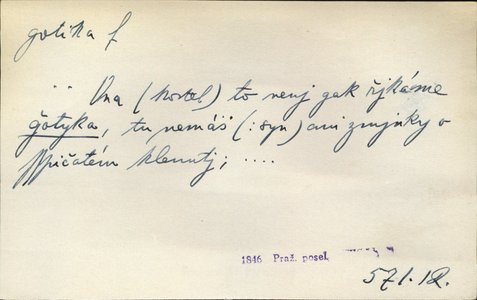 gotika f
.. Una (kostel) to nenj gak řjkáme
gotyka, tu nemáš (:syn) ani zmjnky o
sspičatém klenutj; ....
1846 Praž. posel,
57/.12.